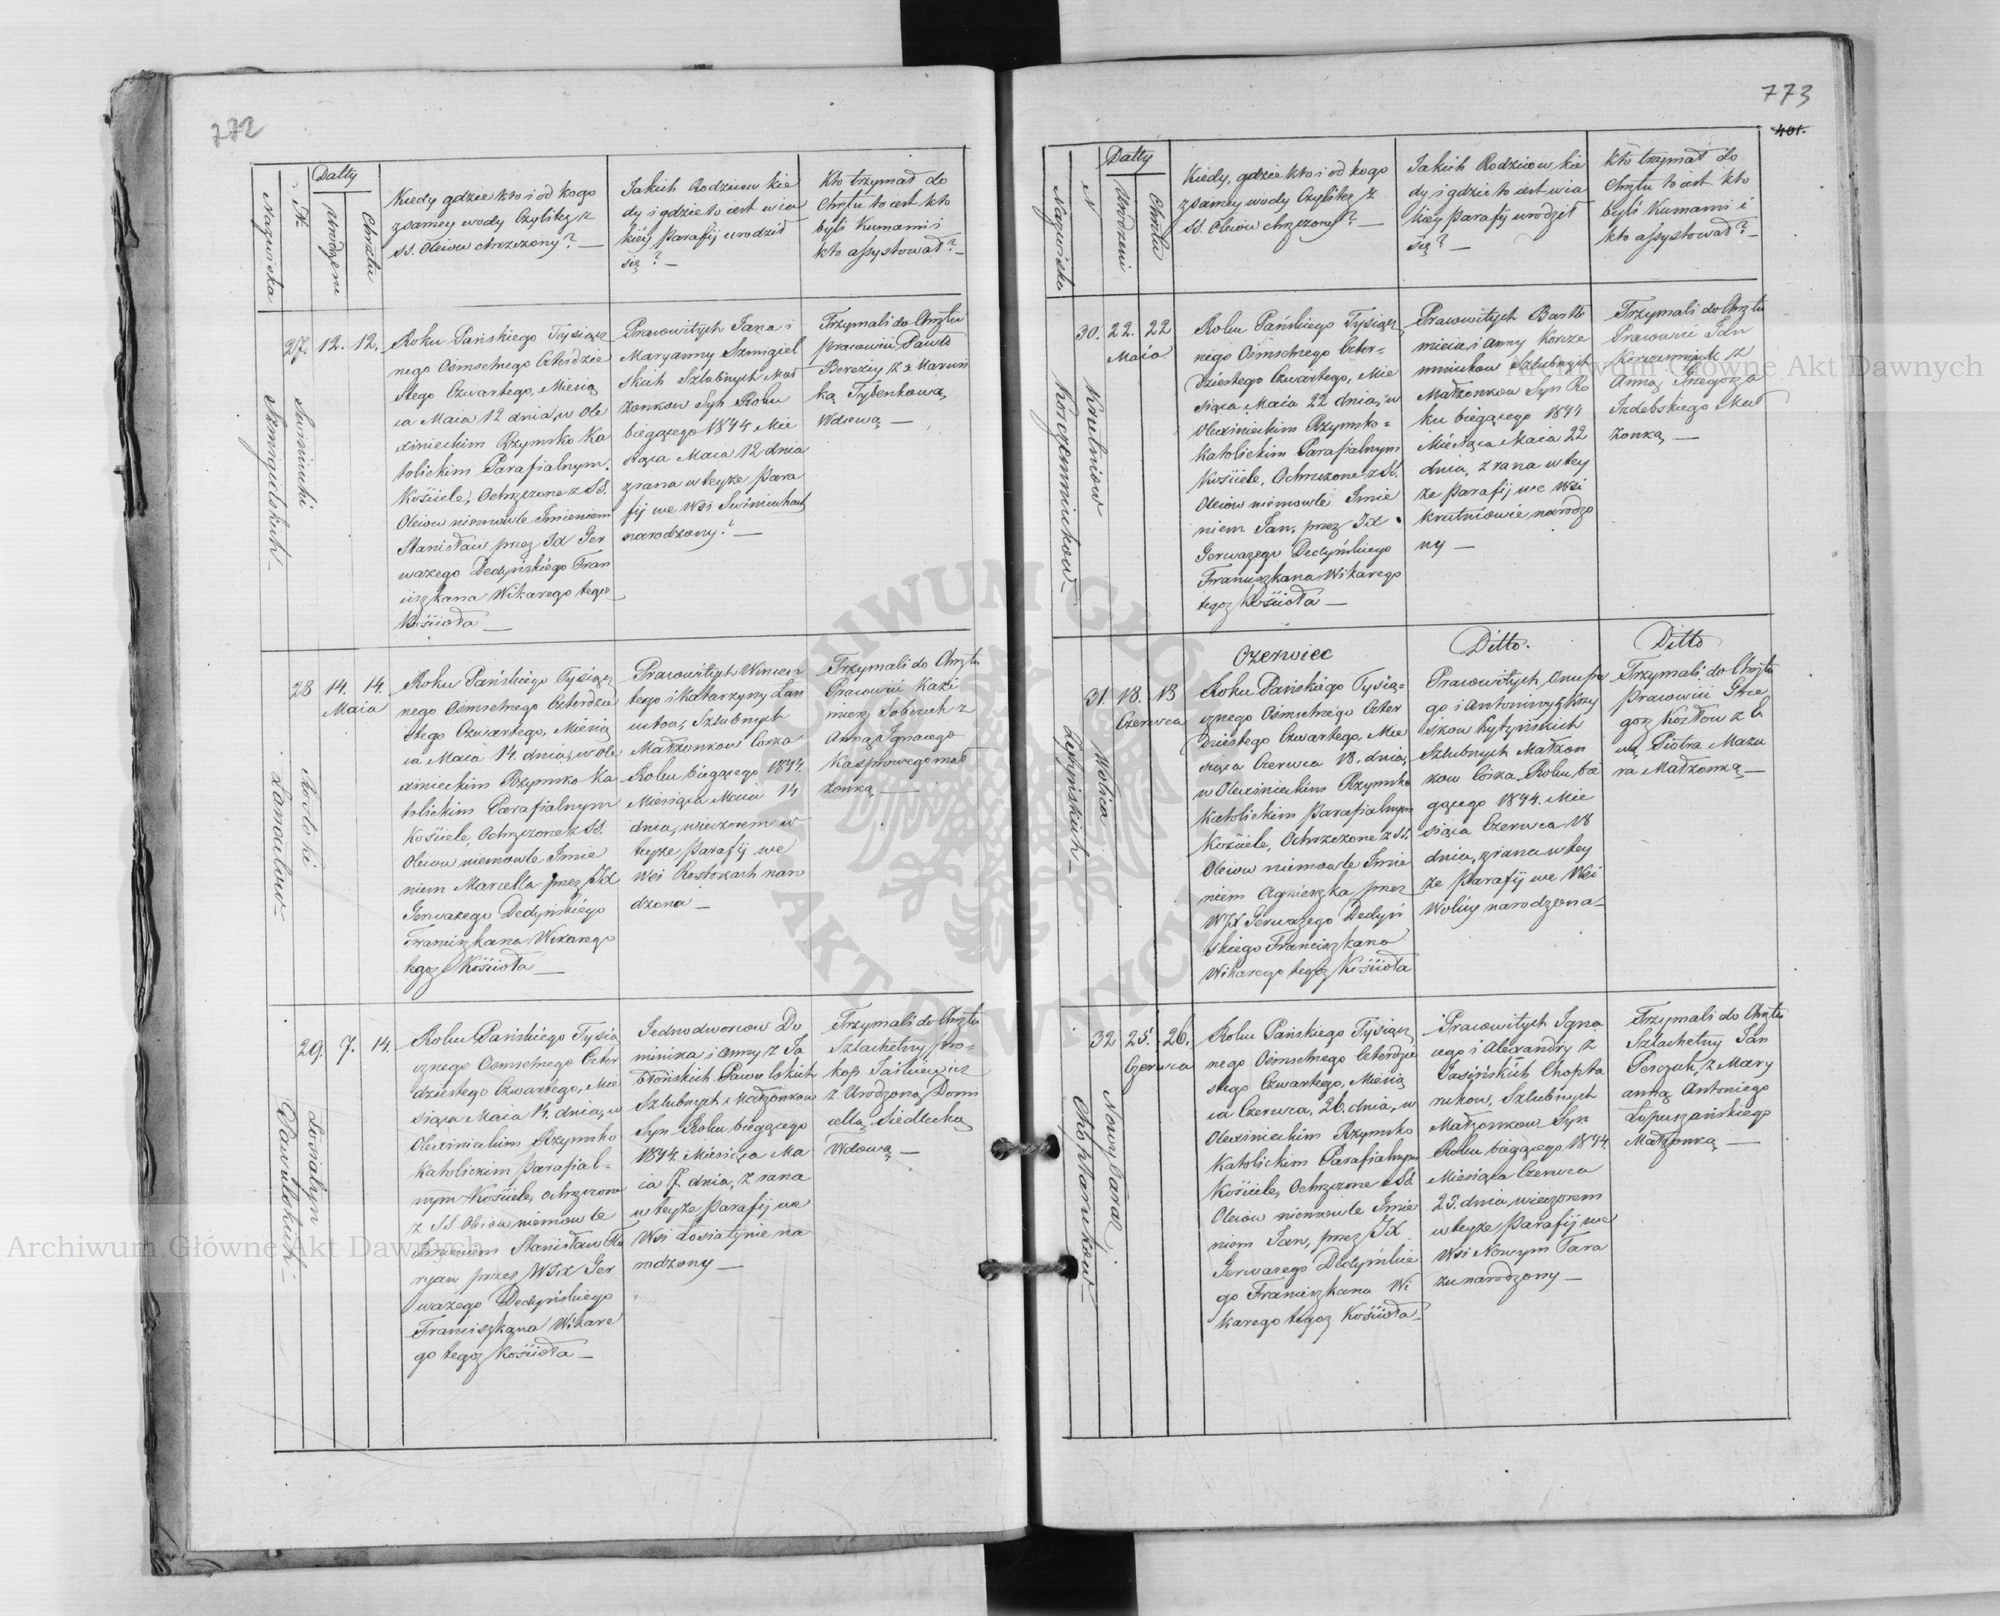 772
Nazwiska
N.
Datty
Urodzenia
Chrztu
Kiedy gdzie kto i od kogo
z samey wody Czyliteż z
SS. Oleiów chrzczony? —
Jakich Rodziców kie
dy i gdzie to iest w ia
kiéy Parafij urodził
się? —
Kto trzymał do
Chrztu to iest kto
byli Kumami i
kto assystował? —
Szmigielskich
Swiniuchi
27.
12.
12.
Roku Pańskiego Tysiącz
nego Ośmsetnego Czterdzie
stego Czwartego, Miesią
ca Maia 12 dnia, w Ole
xinieckim Rzymsko Ka
tolickim Parafialnym
Kościele, Ochrzczone z SS.
Oleiow niemowle Imieniem
Stanisław przez Jx Ger
wazego Dedyńskiego Fran
ciszkana Wikarego tegoż
Kościoła —
Pracowitych Jana i
Maryanny Szmigiel
skich Szlubnych Mał
żonkow Syn Roku
biegącego 1844 Mie
siąca Maia 12 dnia
z rana w teyże Para
fij we Wsi Swiniuchach
narodzony. —
Trzymali do Chrztu
pracowici Pawło
Berezij z Marun
ką
Wdową —
Lancutow —
Rostoki
28
14.
14.
Maia
Roku Pańskiego Tysiącz
nego Ośmsetnego Czterdzie
stego Czwartego, Miesią
ca Maia 14. dnia, w Ole
xinieckim Rzymsko Ka
tolickim Parafialnym
Kościele, Ochrzczone z SS.
Oleiow niemowle Imie
niem Marcella przez Jx
Gerwazego Dedyńskiego
Franciszkana Wikarego
tegoż Kościoła —
Pracowitych Wincen
tego i Katarzyny Lan
cutow, Szlubnych
Małżonkow Corka
Roku biegącego 1844.
Miesiąca Maia 14
dnia, wieczorem w
teyże Parafij we
Wsi Rostokach naro
dzona —
Trzymali do Chrztu
Pracowici Kazi
mierz Sobczuk z
Anną Ignacego
Kasprowego mał
żonką —
Pawulskich —
Łosiatyn
29.
7.
14.
Roku Pańskiego Tysią
cznego Ośmsetnego Czter
dziestego Czwartego, Mie
siąca Maia 14. dnia, w
Olexinieckim Rzymsko
Katolickim Parafial=
nym Kościele, ochrzczone
z SS Oleiow niemowle
Imieniem Stanisław Flo
ryan przez WJx Ger
wazego Dedyńskiego
Franciszkana Wikare
go tegoż Kościoła —
Jednodworcow Do
minika i Anny z Ja
błońskich Pawulskich
Szlubnych Małżonkow
Syn Roku biegącego
1844. Miesiąca Ma
ca 7 dnia, z rana
w teyże Parafij we
Wsi Łosiatynie na
rodzony —
Trzymali do Chrztu
Szlachetny pro=
kop Jaśkiewicz
z Urodzoną Domi
cellą Siedlecką
Wdową —
773
401.
Nazwiska
N
Datty
Urodzenia
Chrztu
Kiedy, gdzie kto i od kogo
z samey wody Czyliteż z
SS. Oleiow chrzczony? —
Jakich Rodziców kie
dy i gdzie to iest w ia
kiey Parafij urodził
się? —
Kto trzymał do
Chrztu to iest kto
byli Kumami i
kto assystował? —
Korzemniukow —
Krutniow
30.
22.
22
Maia
Roku Pańskiego Tysiącz
nego Ośmsetnego Czter=
dziestego Czwartego, Mie
siąca Maia 22 dnia, w
Olexinieckim Rzymsko=
Katolickim Parafialnym
Kościele, Ochrzczone z SS.
Oleiow niemowle Imie
niem Jan, przez Jx
Gerwazego Dedyńskiego
Franciszkana Wikarego
tegoż Kościoła —
Pracowitych Bartło
mieia i Anny Korze
mniukow Szlubnych
Małżonkow Syn Ro
ku biegącego 1844
Miesiąca Maia 22
dnia, z rana w tey
że Parafij we Wsi
Krutniowie narodzo
ny —
Trzymali do Chrztu
Pracowici Jan
Korzemniuk z
Anną Grzegorza
Izdebskiego Mał
żonką —
Czerwiec
Ditto.
Ditto
Hytyńskich —
Wolica
31.
18.
18
Czerwca
Roku Pańskiego Tysią=
cznego Ośmsetnego Czter
dziestego Czwartego, Mie
siąca Czerwca 18. dnia,
w Olexinieckim Rzymsko
Katolickim Parafialnym
Kościele, Ochrzczone z SS.
Oleiow niemowle Imie
niem Agnieszka przez
WJX Gerwazego Dedyń
skiego Franciszkana
Wikarego tegoż Kościoła
Pracowitych Onufre
go i Antoniny z Krzy
skow Hytyńskich
Szlubnych Małżon
kow Córka, Roku bie
gącego 1844. Mie
siąca Czerwca 18
dnia, z rana w tey
że Parafij we Wsi
Wolicy narodzona —
Trzymali do Chrztu
Pracowici Grze
gorz Kozłow z E
wą Piotra Mazu
ra Małżonką —
Choptarukow —
Nowy Taraż,
32
25.
26.
Czerwca
Roku Pańskiego Tysiącz
nego Ośmsetnego Czterdzie
stego Czwartego, Miesią
ca Czerwca, 26. dnia, w
Olexinieckim Rzymsko
Katolickim Parafialnym
Kościele, Ochrzczone z SS.
Oleiow niemowle Imie
niem Jan, przez JX
Gerwazego Dedyńskie
go Franciszkana Wi
karego tegoż Kościoła —
Pracowitych Igna
cego i Alexandry z
Jasińskich Chopta
rukow, Szlubnych
Małżonkow Syn
Roku biegącego 1844.
Miesiąca Czerwca
25. dnia, wieczorem
w teyże Parafij we
Wsi Nowym Tara
żu narodzony —
Trzymali do Chrztu
Szlachetny Jan
Perczuk, z Mary
anną Antoniego
Łopuszańskiego
Małżonką —
Archiwum Główne Akt Dawnych
Archiwum Główne Akt Dawnych
ARCHIWUM GŁÓWNE AKT DAWNYCH